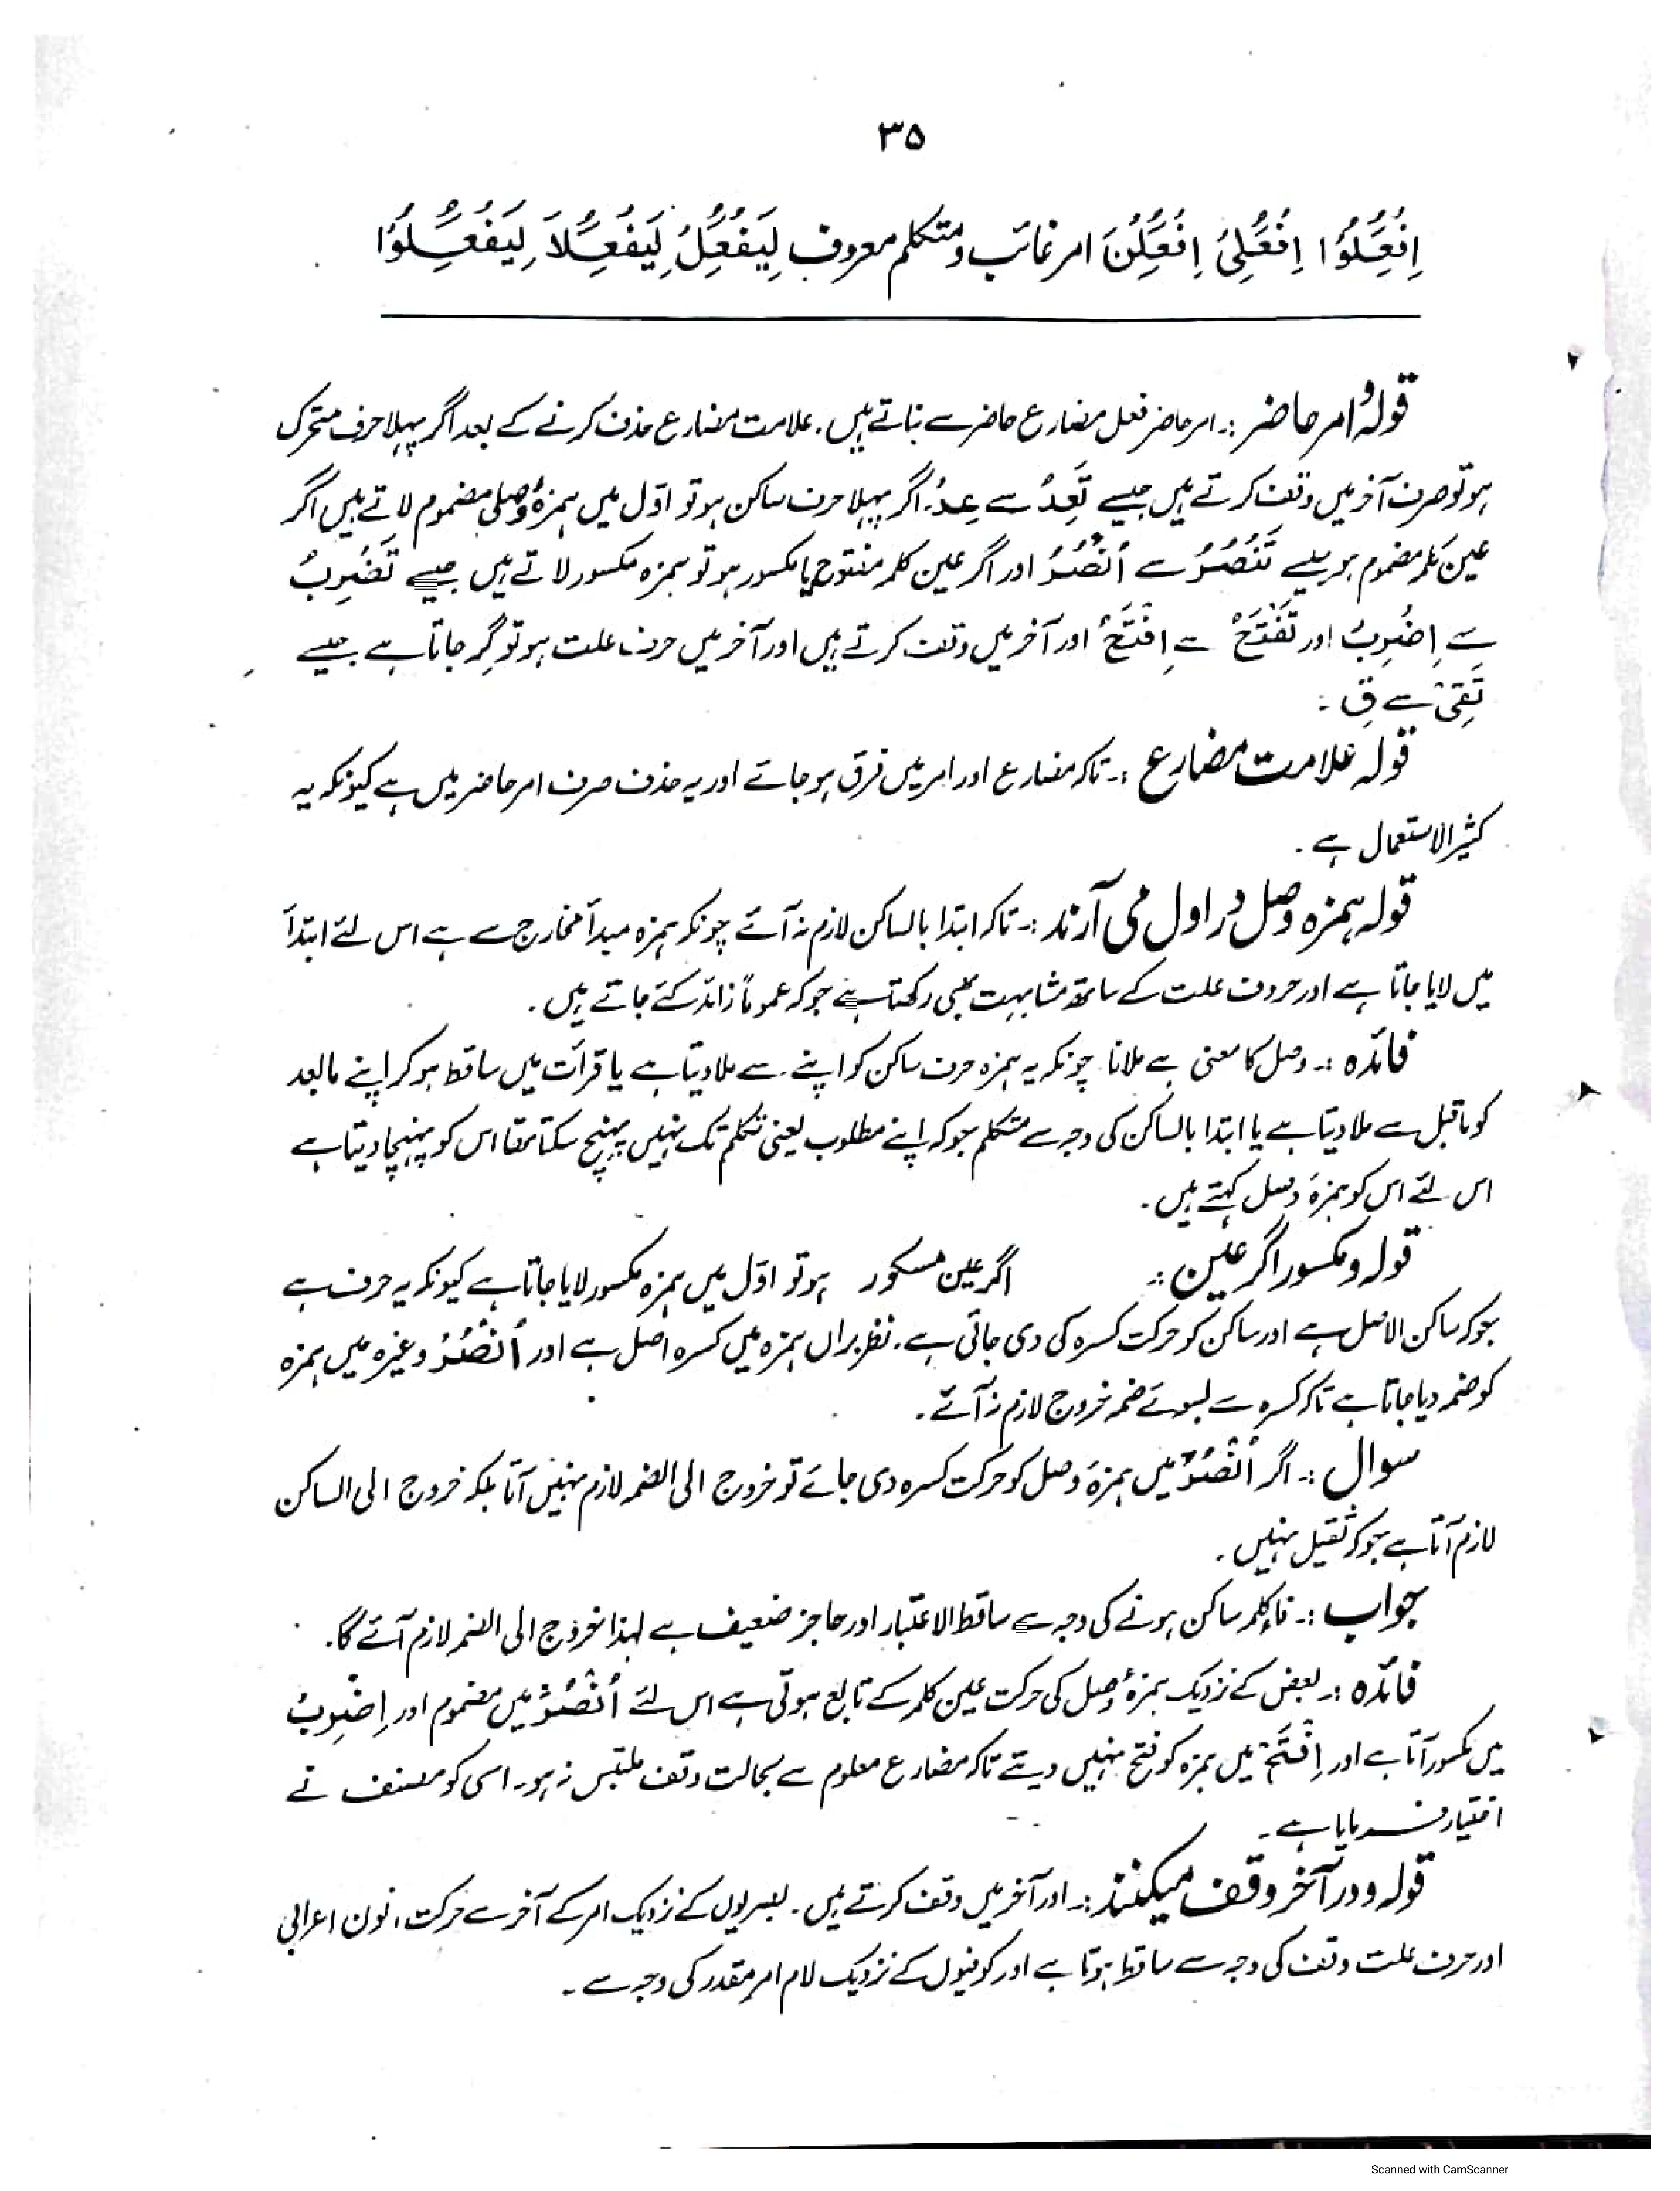 ۳۵
اِفْعَِلُوْا اِفْعَِلِیْ اِفْعَِلْنَ امر غائب ومتکلم معروف لِیَفْعَِلْ لِیَفْعَِلَا لِیَفْعَِلُوْا
قولہٗ امر حاضر :۔ امر حاضر فعل مضارع حاضر سے بناتے ہیں۔ علامت مضارع حذف کرنے کے بعد اگر پہلا حرف متحرک
ہو تو صرف آخر میں وقف کرتے ہیں جیسے تَعِدُ سے عِدْ۔ اگر پہلا حرف ساکن ہو تو اوّل میں ہمزہٗ وصلی مضموم لاتے ہیں اگر
عین کلمہ مضموم ہو جیسے تَنْصُرُ سے اُنْصُرْ اور اگر عین کلمہ مفتوح یا مکسور ہو تو ہمزہ مکسور لاتے ہیں جیسے تَضْرِبُ
سے اِضْرِبْ اور تَفْتَحُ سے اِفْتَحْ اور آخر میں وقف کرتے ہیں اور آخر میں حرف علت ہو تو گِر جاتا ہے جیسے
تَقِیْ سے قِ :
قولہ علامت مضارع :۔ تاکہ مضارع اور امر میں فرق ہو جائے اور یہ حذف صرف امر حاضر میں ہے کیونکہ یہ
کثیر الاستعمال ہے ۔
قولہ ہمزہ وصل در اول می آرند :۔ تاکہ ابتدا بالساکن لازم نہ آئے چونکہ ہمزہ مبدأ مخارج سے ہے اس لئے ابتدأ
میں لایا جاتا ہے اور حروف علت کے ساتھ مشابہت بھی رکھتا ہے جو کہ عموماً زائد کئے جاتے ہیں ۔
فائدہ :۔ وصل کا معنی ہے ملانا چونکہ یہ ہمزہ حرف ساکن کو اپنے ۔ سے ملا دیتا ہے یا قرأت میں ساقط ہو کر اپنے مابعد
کو ماقبل سے ملا دیتا ہے یا ابتدا بالساکن کی وجہ سے متکلم جو کہ اپنے مطلوب یعنی تکلم تک نہیں پہنچ سکتا تھا اس کو پہنچا دیتا ہے
اس لئے اس کو ہمزہَ وصل کہتے ہیں ۔
قولہ ومکسور اگر عین :۔ اگر عین مسکور ہو تو اوّل میں ہمزہ مکسور لایا جاتا ہے کیونکہ یہ حرف ہے
جو کہ ساکن الاصل ہے اور ساکن کو حرکت کسرہ کی دی جاتی ہے۔ نظر براں ہمزہ میں کسرہ اصل ہے اور اُنْصُرْ وغیرہ میں ہمزہ
کو ضمہ دیا جاتا ہے تاکہ کسرہ سے بسوئے ضمہ خروج لازم نہ آئے ۔
سوال :۔ اگر اُنْصُرْ میں ہمزہَ وصل کو حرکت کسرہ دی جائے تو خروج الی الضمہ لازم نہیں آتا بلکہ خروج الی الساکن
لازم آتا ہے جو کہ ثقیل نہیں ۔
جواب :۔ فاء کلمہ ساکن ہونے کی وجہ سے ساقط الاعتبار اور حاجز ضعیف ہے لہذا خروج الی الضمہ لازم آئے گا۔
فائدہ :۔ بعض کے نزدیک ہمزہٗ وصل کی حرکت عین کلمہ کے تابع ہوتی ہے اس لئے اُنْصُرْ میں مضموم اور اِضْرِبْ
میں مکسور آتا ہے اور اِفْتَحْ میں ہمزہ کو فتح نہیں دیتے تاکہ مضارع معلوم سے بحالت وقف ملتبس نہ ہو۔ اسی کو مصنف نے
اختیار فرمایا ہے ۔
قولہ و در آخر وقف میکنند :۔ اور آخر میں وقف کرتے ہیں ۔ بصریوں کے نزدیک امر کے آخر سے حرکت، نون اعرابی
اور حرف علت وقف کی وجہ سے ساقط ہوتا ہے اور کوفیوں کے نزدیک لام امر مقدر کی وجہ سے ۔
Scanned with CamScanner